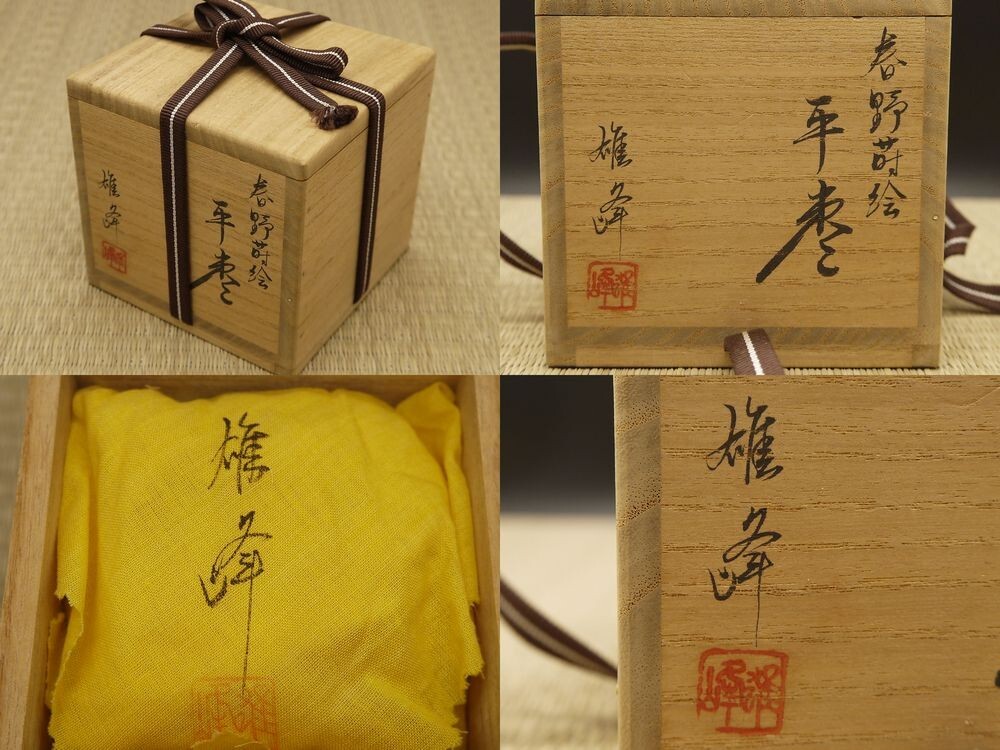 春野蒔絵
平棗
雄峰
春野蒔絵
平棗
雄峰
雄峰
雄峰